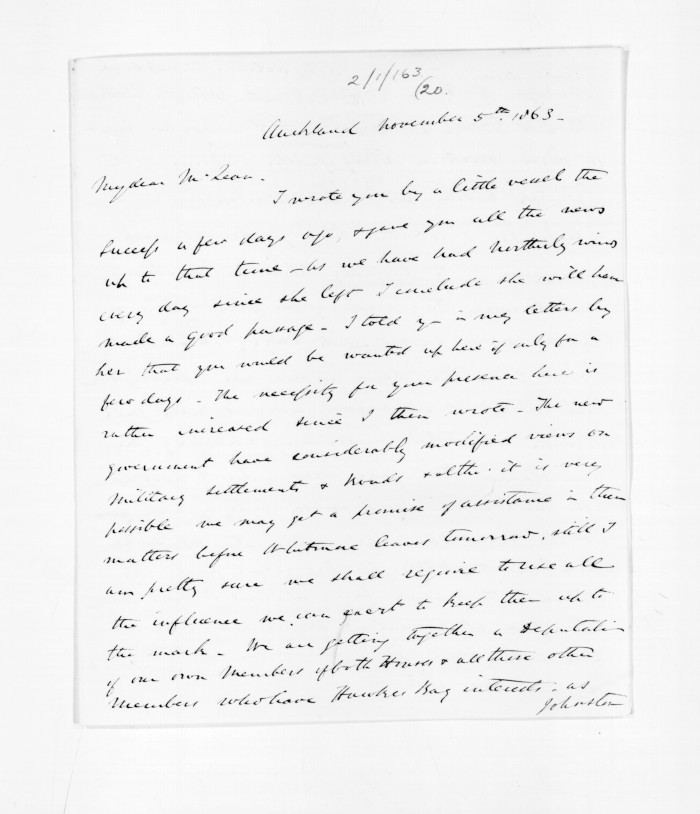 2/1/163
(20.
Auckland November 5th 1863 -
My dear McLean.
I wrote you by a little vessel the
Success a few days ago, & gave you all the news
up to that time - as we have had Northerly winds
every day since she left I conclude she will have
made a good passage - I told you in my letters by
her that you would be wanted up here if only for a
few days - The necessity for your presence here is
rather increased since I then wrote - The new
government have considerably modified views on
Military settlements & Roads & altho' it is very
possible we may get a promise of assistance in these
matters before Whitmore leaves tomorrow, still I
am pretty sure we shall require to use all
the influence we can exert to keep them up to
the mark - We are getting together a Deputation
of our own Members of both Houses & all those other
Members who have Hawkes Bay interests, as
Johnston